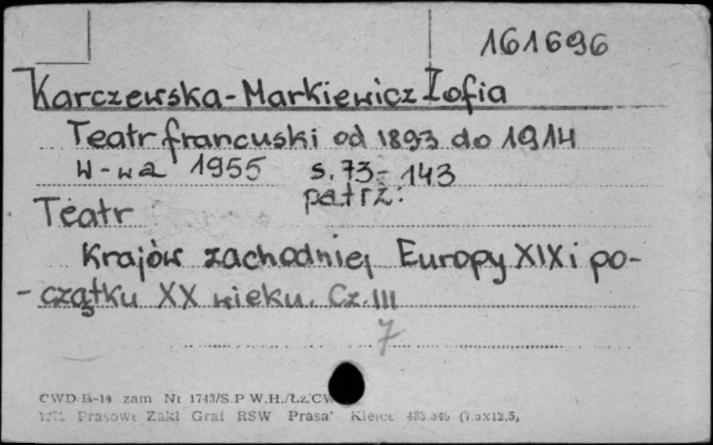 161696
Karczewska-Markiewicz Zofia
Teatr francuski od 1893 do 1914
W-wa 1955 s. 73-143
patrz:
Teatr
Krajów zachodniej Europy XIX i po-
-czątku XX wieku. Cz. III
7
CWD B-14 zam Nr 1743/S.P W.H./Łz.CW
Prasowe Zakł Graf RSW Prasa" Kielce (7.5x12.5,